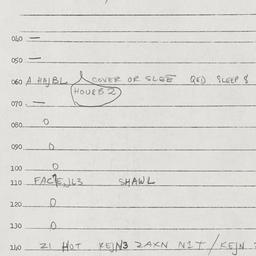 040 —
050 —
060 A HAJBL COVER OR SLEE QED SLEEP $
HOURS 2
070 —
080 0
090 0
100 0
110 FACTEJL3 SHAWL
120 0
130 0
140 21 HOT KEJN3 2AXN N1T / KEJN